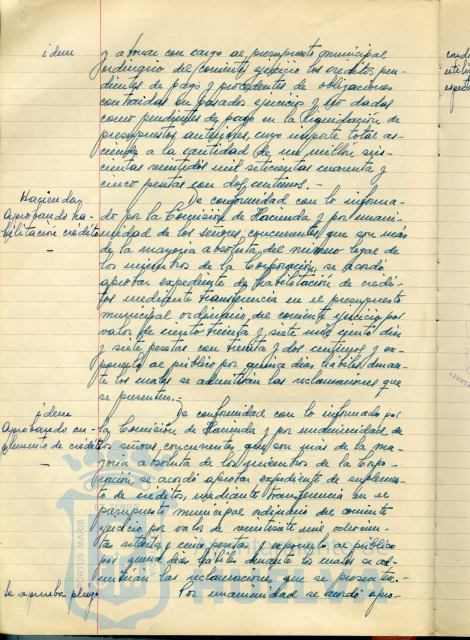 idem
y abonar con cargo al presupuesto municipal
ordinario del corriente ejercicio los créditos pen-
dientes de pago y procedentes de obligaciones
contraidas en pasados ejercicios y no dadas
como pendientes de pago en la liquidación de
presupuestos anteriores, cuyo importe total as-
ciende a la cantidad de un millón seis-
cientas veintidos mil setecientas cuarenta y
cinco pesetas con dos centimos.-
Hacienda,
Aprobando ha-
bilitación crédito
-
De conformidad con lo informa-
do por la Comisión de Hacienda y por unani-
midad de los señores concurrentes, que son más
de la mayoría absoluta del número legal de
los miembros de la Corporación, se acordó
aprobar expediente de habilitación de crédi-
tos mediante transferencia en el presupuesto
municipal ordinario del corriente ejercicio por
valor de ciento treinta y siete mil ciento diez
y siete pesetas con treinta y dos centimos y ex-
ponerlo al público por quince días hábiles duran-
te los cuales se admitirán las reclamaciones que
se presenten.-
idem
Aprobando su-
plemento de crédito
-
De conformidad con lo informado por
la Comisión de Hacienda y por unanimidad de
los señores concurrentes que son más de la ma-
yoría absoluta de los miembros de la Corpo-
ración, se acordó aprobar expediente de suplemen-
to de créditos, mediante transferencia en el
presupuesto municipal ordinario del corriente
ejercicio por valor de veintisiete mil
y una pesetas y exponerlo al público
por quince días hábiles durante los cuales se ad-
mitirán las reclamaciones que se presenten.-
Se aprueba pliego
Por unanimidad se acordó apro-
PORTUS MARIS
HUELVA